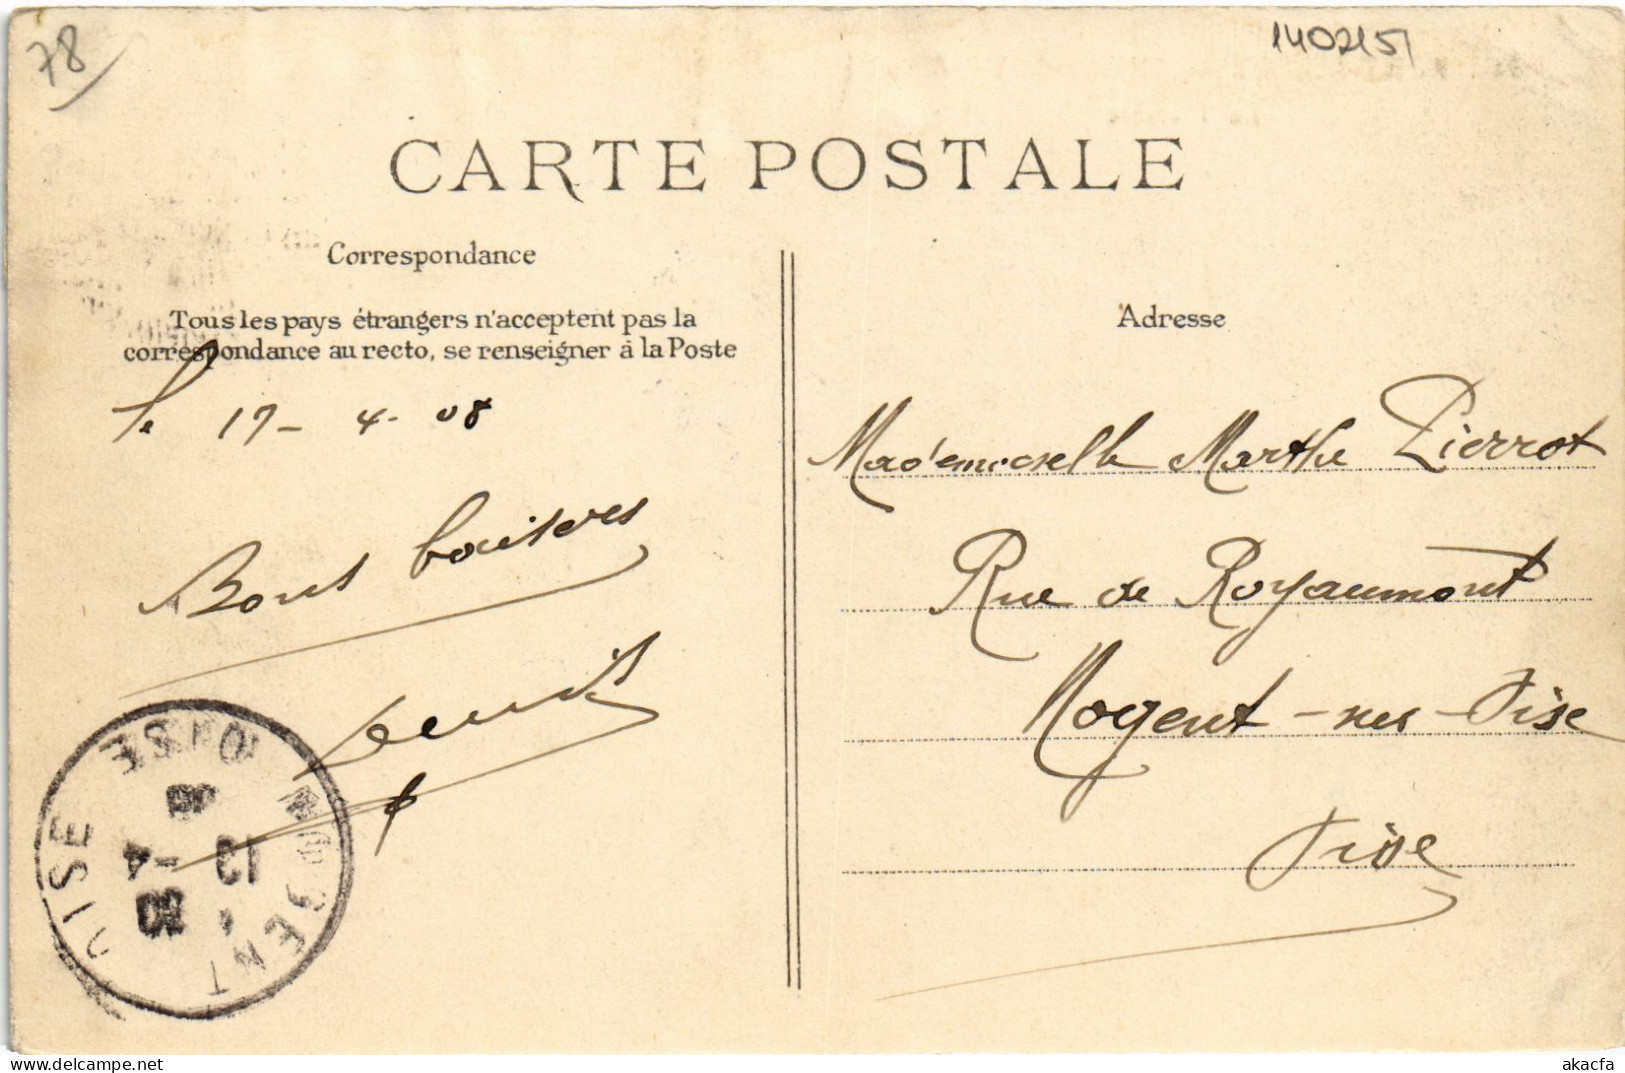 78
1402151
CARTE POSTALE
Correspondance
Tous les pays étrangers n'acceptent pas la
correspondance au recto, se renseigner à la Poste
Le 17-4-08
Bons baisers
Adresse
Mademoiselle Marthe Pierrot
Rue de Royaumont
Nogent-sur-Oise
Oise
NOGENT OISE
akacfa